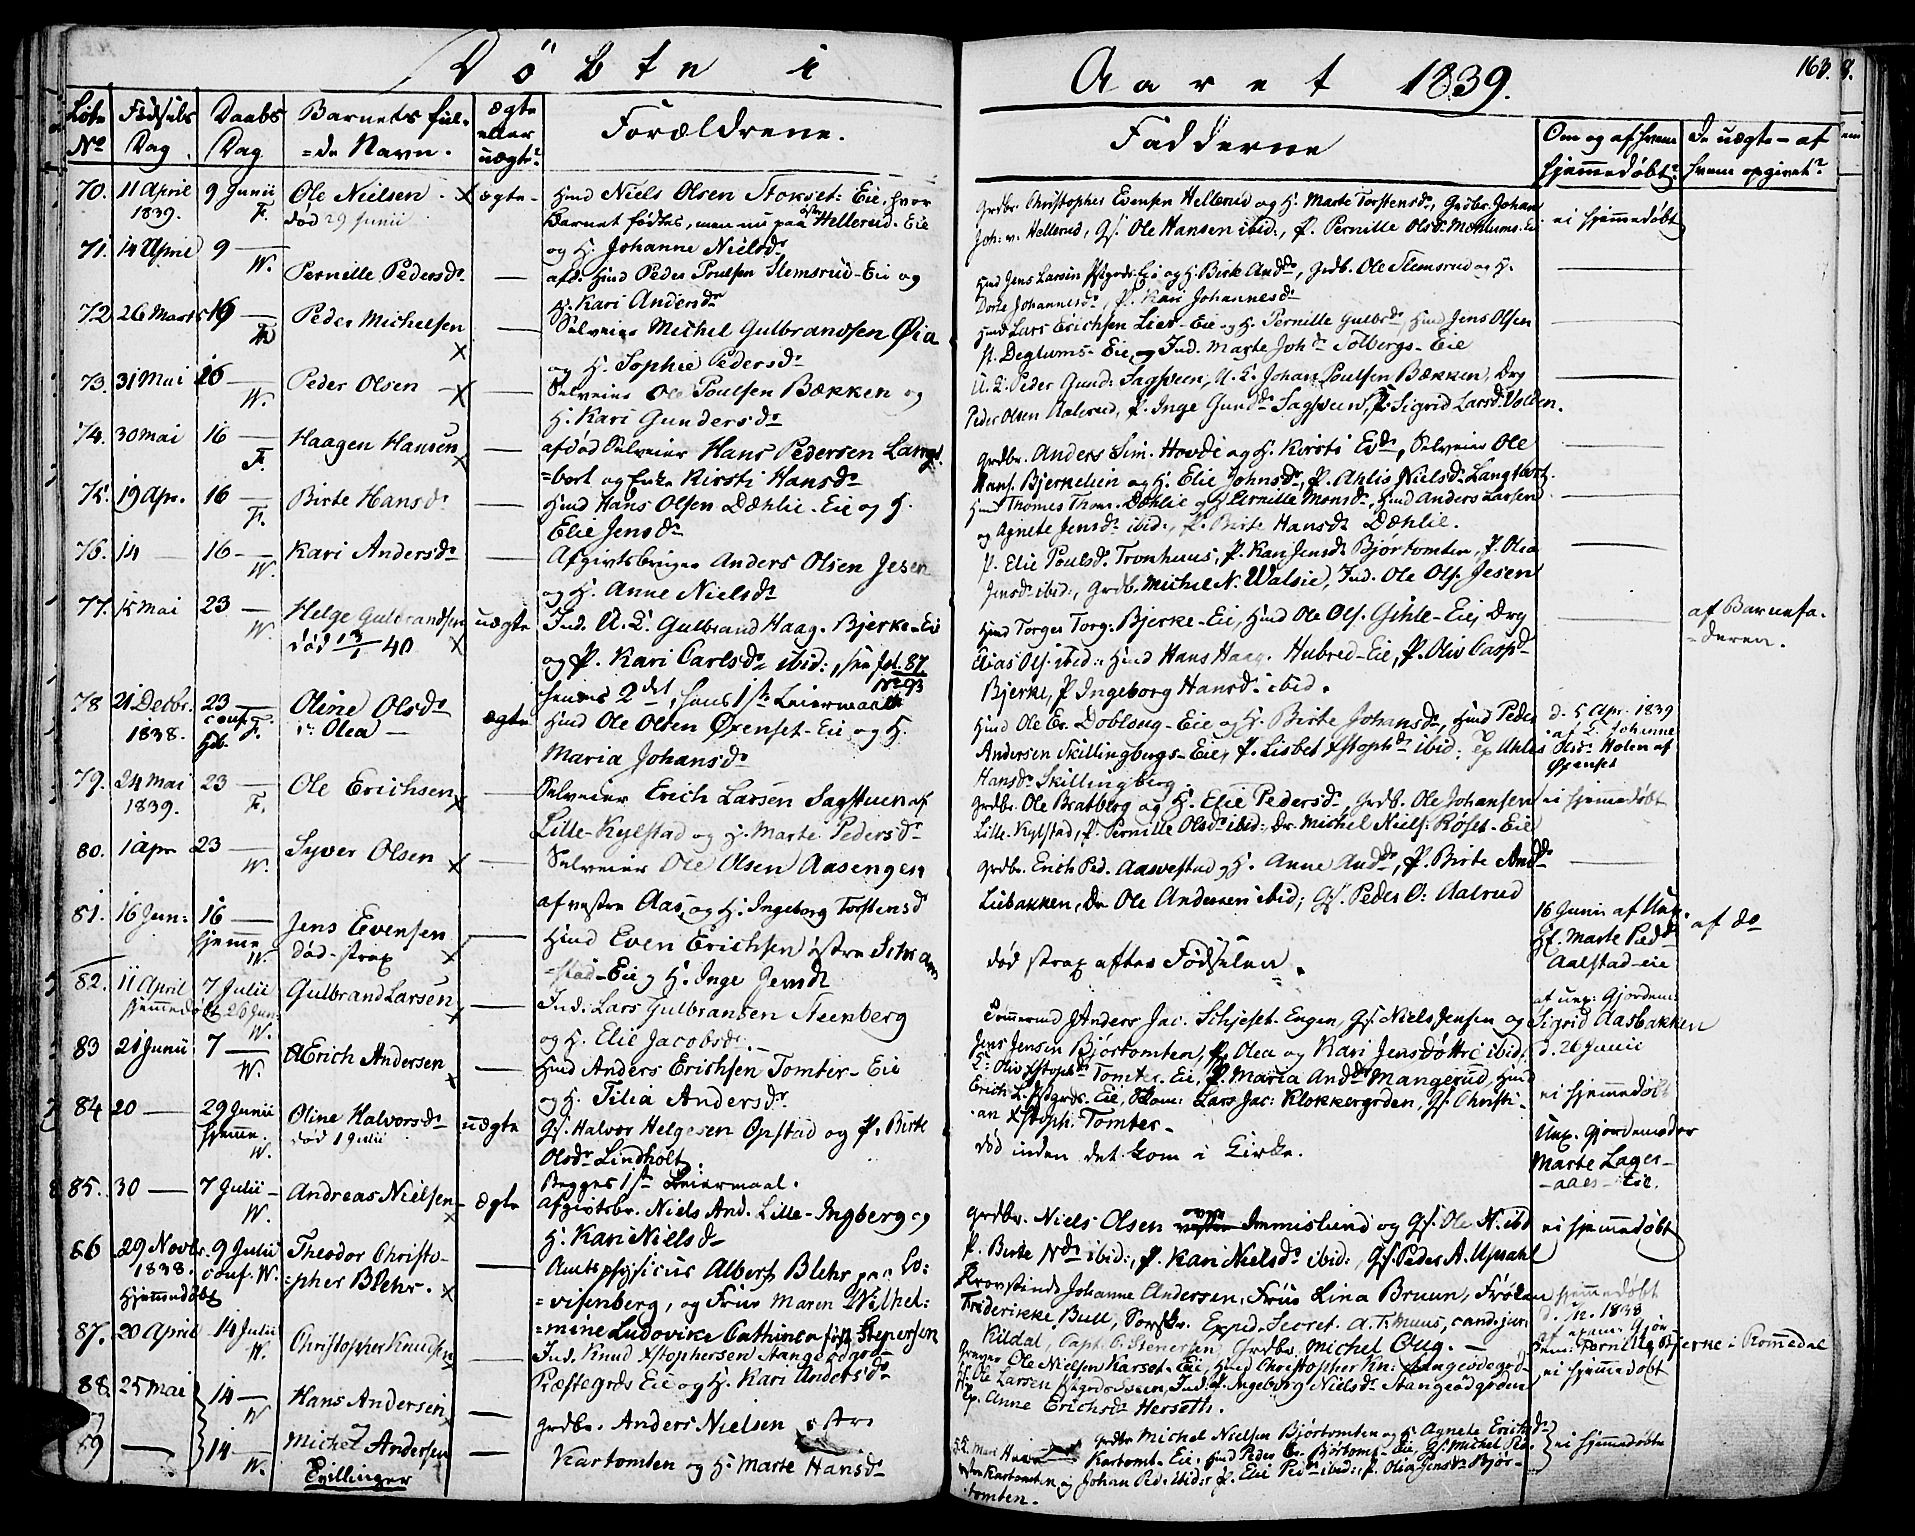 Döbte i
Aaret 1839.
163.
Löbe No
Födsels Dag.
Daabs Dag
Barnets ful=de Navn.
ægte eller uægte?
Forældrene.
Fadderne
Om og af hvem hjemmedöbt?
De uægte – af hvem opgivet?
70. 11 April 1839. 9 Junii F. Ole Nielsen död 29 Junii ægte
Hmd Niels Olsen Stokset: Eie, hvor
Barnet födtes, men nu paa östre Hellerud-Eie
og H. Johanne Nielsdr
Grdbr. Christopher Evensen Hellerud og H. Marte Torstensdr, Grdbr. Johan
Joh: v. Hellerud, Gf. Ole Hansen ibid:, P. Pernille Olsdr Mæhlums-Eie
ei hjemmedöbt
71. 14 April 9 — W. Pernille Pedersdr —
afd. Hmd Peder Poulsen Stemsrud-Eie og
H. Kari Andersdr
Hmd Jens Larsen Pstgrds Eie og H. Birte Anddr, Grdb. Ole Stemsrud og H.
Dorte Johannesdr, P. Kari Johannesdr
72. 26 Marts 16 — Peder Michelsen —
Selveier Michel Gulbrandsen Öia
og H. Sophie Pedersdr
Hmd Lars Erichsen Lier-Eie og H. Pernille Gulbrdr, Hmd Jens Olsen
st. Deglums-Eie, og Ind. Marte Johdr Tolbergs-Eie
73. 31 Mai 16 — W. Peder Olsen —
Selveier Ole Poulsen Bækken og
H. Kari Gundersdr
U.K. Peder Gund: Sagsveen, U.K. Johan Poulsen Bækken, Drg
Peder Olsen Aalerud, P. Inge Gunddr Sagsveen, P. Sigrid Larsdr Volden.
74. 30 Mai 16 — F. Haagen Hansen —
afdöd Selveier Hans Pedersen Lang=
=bort og Enke Kirsti Hansdr
Grdbr. Anders Sim. Hovde og H. Kirsti Edr, Selveier Ole
Hans. Bjernelien og H. Elie Johnsdr, P. Ahlis Nielsdr Langtbort.
75. 19 Apr. 16 — F. Birte Hansdr —
Hmd Hans Olsen Dæhlie-Eie og H.
Elie Jensdr
Hmd Thomes Thom. Dæhlie og H. Pernille Monsdr, Hmd Anders Larsen
og Agnete Jensdr ibid:, P. Birte Hansdr Dæhlie.
76. 14 — 16 — W. Kari Andersdr —
Afgivtsbruger Anders Olsen Jesen
og H. Anne Nielsdr
P. Elie Poulsdr Tronhuus, P. Kari Jensdr Bjørtomten, P. Olea
Jensdr ibid:, Grdb. Michel N. Walsie, Ind. Ole Ols. Jesen
77. 15 Mai 23 — W. Helge Gulbrandsen död 13/1 40 uægte
Ind. U.K. Gulbrand Haag. Bjerke-Eie
og P. Kari Carlsdr ibid:, see fol. 87 No 93
hendes 2det, hans 1ste Leiermaal
Hmd Torger Torg: Bjerke-Eie, Hmd Ole Ols. Gihle-Eie, Drg
Elias Ols. ibid:, Hmd Hans Haag. Hubred-Eie, P. Oliv Caspdr
Bjerke, P. Ingeborg Hansdr ibid.
af Barnefa=
=deren.
78 21 Decbr. 1838. 23 — conf. Hdb. F. Oline Olsdr v: Olea — ægte
Hmd Ole Olsen Öxenset-Eie og H.
Maria Johansdr
Hmd Ole Er. Doblong-Eie og H. Birte Johansdr, Hmd Peder
Andersen Skillingbergs-Eie, P. Lisbet Xstophdr ibid:, Ep. Ahlis
Hansdr Skillingberg
d. 5 Apr. 1839
af L. Johanne
Holen af
Öxenset
79. 24 Mai 1839. 23 — F. Ole Erichsen —
Selveier Erich Larsen Sagstuen af
Lille-Kylstad og H. Marte Pedersdr
Grdbr. Ole Bratberg og H. Elie Pedersdr, Grdb. Ole Johansen
Lille-Kylstad, P. Pernille Olsdr ibid: Dr. Michel Niels: Röset-Eie
ei hjemmedöbt
80. 1 Apr 23 — W. Syver Olsen —
Selveier Ole Olsen Aasengen
af vestre Aas, og H. Ingeborg Torstensd
Grdbr. Erich Ped. Aasvestad og H. Anne Anddr, P. Birte Anddr
Liebakken, Dr Ole Andersen ibid; Gf. Peder O: Aalrud
81. 16 Jun: 16 — hjemme W. Jens Evensen död strax —
Hmd Even Erichsen östre Schram=
=stad-Eie og H. Inge Jensdr
död strax efter Födselen.
16 Junii af Unx.
Hf. Marte Peddr
Aalstad-eie
af do
82. 11 April hjemmedöbt 26 Jun: 7 Julii W. Gulbrand Larsen —
Ind. Lars Gulbransen Steenberg
og H. Elie Jacobsdr. —
Anders Jac. Schjeset-Engen, Gf. Niels Jensen og
Jens Jensen Bjørtomten, P. Olea og Kari Jensdöttre ibid.
af unx: Gjordem.
Sigrid Aasbakken
d. 26 Junii
83 21 Junii 7 — W. Erich Andersen —
Hmd Anders Erichsen Tomter-Eie
og H. Tilia Andersdr.
L: Oliv Xstophdr Tomter-Eie, P. Maria Anddr Mangerud, Hmd
Erich L. Pstgrds-Eie, Skom: Lars Jac: Klokkergrden, Gf. Christi=
=an Xstoph: Tomter —
ei hjemmedöbt
84 20 — 29 Junii hjemme. W. Oline Halvorsdr död 1 Julii uægte
Gf. Halvor Helgesen Opstad og P. Birte
Olsdr Lindholt.
Begges 1ste Leiermaal.
död inden det kom i Kirke.
Unx. Gjordemoder
Marte Lager-
-aaes-Eie.
85. 30 — 7 Julii — W. Andreas Nielsen ægte
Afgivtsbr. Niels And. Lille-Ingberg og
H. Kari Nielsdr
Grdbr. Niels Olsen övre Immislund og Gf. Ole N. ibd
P. Birte Ndr ibid:, P. Kari Nielsdr ibid:, Gf. Peder A. Upsahl
ei hjemmedöbt
86 29 Novbr. 1838. Hjemmedöbt 9 Julii conf. W. Theodor Christo=
=pher Blehr. —
Amtsphysicus Albert Blehr paa Lo=
=visenberg, og Frue Maren Wilhel=
=mine Ludovike Cathinca föd Stenersen
Provstinde Johanne Andersen, Frue Lina Bruun, Fröken
Friderikke Bull, Sorskr. Exped. Secret. A. T. Muus, cand. juri
Kildal, Capt. O. Stenersen, Grdbr. Michel Oug. —
hjemmedöbt
1838
af exam: Gjor=
dem: Pernille Bjerke i Romedal
87. 20 April 14 Julii W. Christopher Knudsen —
Ind. Knud Xstophersen Stangesdgrd-
Præstegrds Eie og H. Kari Andersdr
Graver Ole Nielsen Karset-Eie, Hmd Christopher Kn: Stangesdegrd-
Ole Larsen Pstgrds Sveen, Ind: P. Ingeborg Nielsdr Stangesdgrden
Ep. Anne Erichsdr Herseth.
ei hjemmedöbt
88. 25 Mai 14 — W Hans Andersen —
89 — 14 — W. Michel Andersen —
Tvillinger
Grdbr. Anders Nielsen östre
Kartomten og H. Marte Hansdr
Grdbr Michel Nielsen Bjørtomten og H. Agnete Erichsdr
Kartomt-Eie, Hmd Peder Er. Bjørtomt-Eie, Gf. Michel Pe=
östre Kartomten og Johan Ped. ibid:, P. Elie Peddr ibid:, P. Olia Jensdr Bjør-
tomten.
ei hjemmedöbte